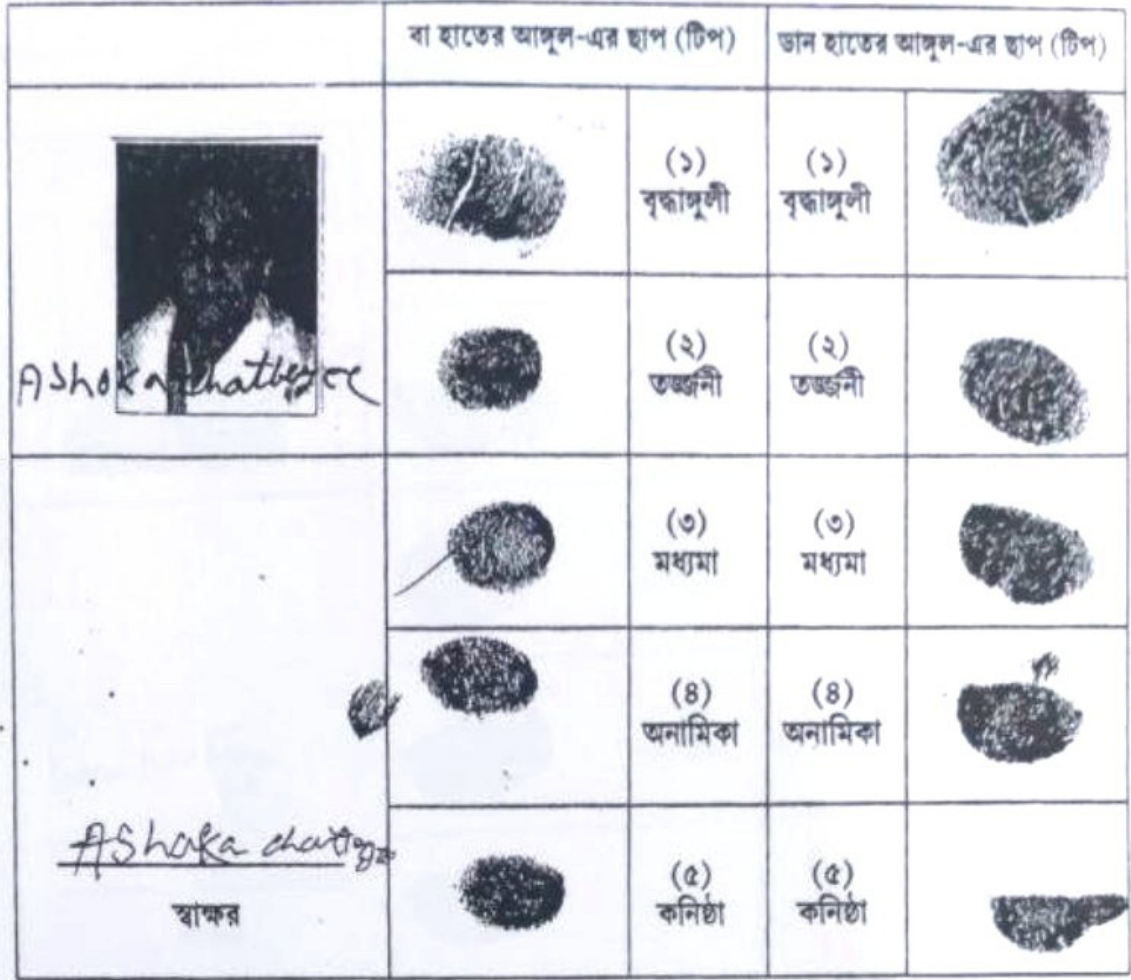 বা হাতের আঙ্গুল-এর ছাপ (টিপ)
ডান হাতের আঙ্গুল-এর ছাপ (টিপ)
(১)
বৃদ্ধাঙ্গুলী
(১)
বৃদ্ধাঙ্গুলী
Ashoka Chatterjee
(২)
তর্জ্জনী
(২)
তর্জ্জনী
(৩)
মধ্যমা
(৩)
মধ্যমা
(৪)
অনামিকা
(৪)
অনামিকা
Ashoka
স্বাক্ষর
(৫)
কনিষ্ঠা
(৫)
কনিষ্ঠা